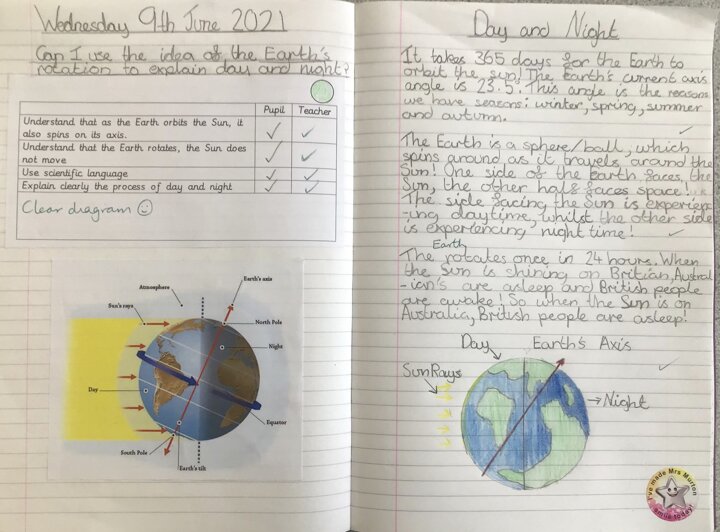 Wednesday 9th June 2021
Can I use the idea of the Earth's
rotation to explain day and night?
Pupil Teacher
Understand that as the Earth orbits the Sun, it
also spins on its axis. ✓ ✓
Understand that the Earth rotates, the Sun does
not move ✓ ✓
Use scientific language ✓ ✓
Explain clearly the process of day and night ✓ ✓
Clear diagram ☺
Earth's axis
Atmosphere
Sun's rays
North Pole
Night
Day
Equator
South Pole
Earth's tilt
Day and Night
It takes 365 days for the Earth to
orbit the sun! The Earth's current axis
angle is 23.5°. This angle is the reasons
we have seasons: winter, spring, summer
and autumn.
The Earth is a sphere/ball, which
spins around as it travels around the
Sun! One side of the earth faces, the
Sun, the other half faces space!
The side facing the Sun is experienc
-ing daytime, whilst the other side
is experiencing night time!
Earth
The rotates once in 24 hours. When
the Sun is shining on Britian, Austral
-ian's are asleep and British people
are awake! So when the Sun is on
Australia, British people are asleep!
Day Earth's Axis
Sun Rays
Night
I've made Mrs Murton
smile today!